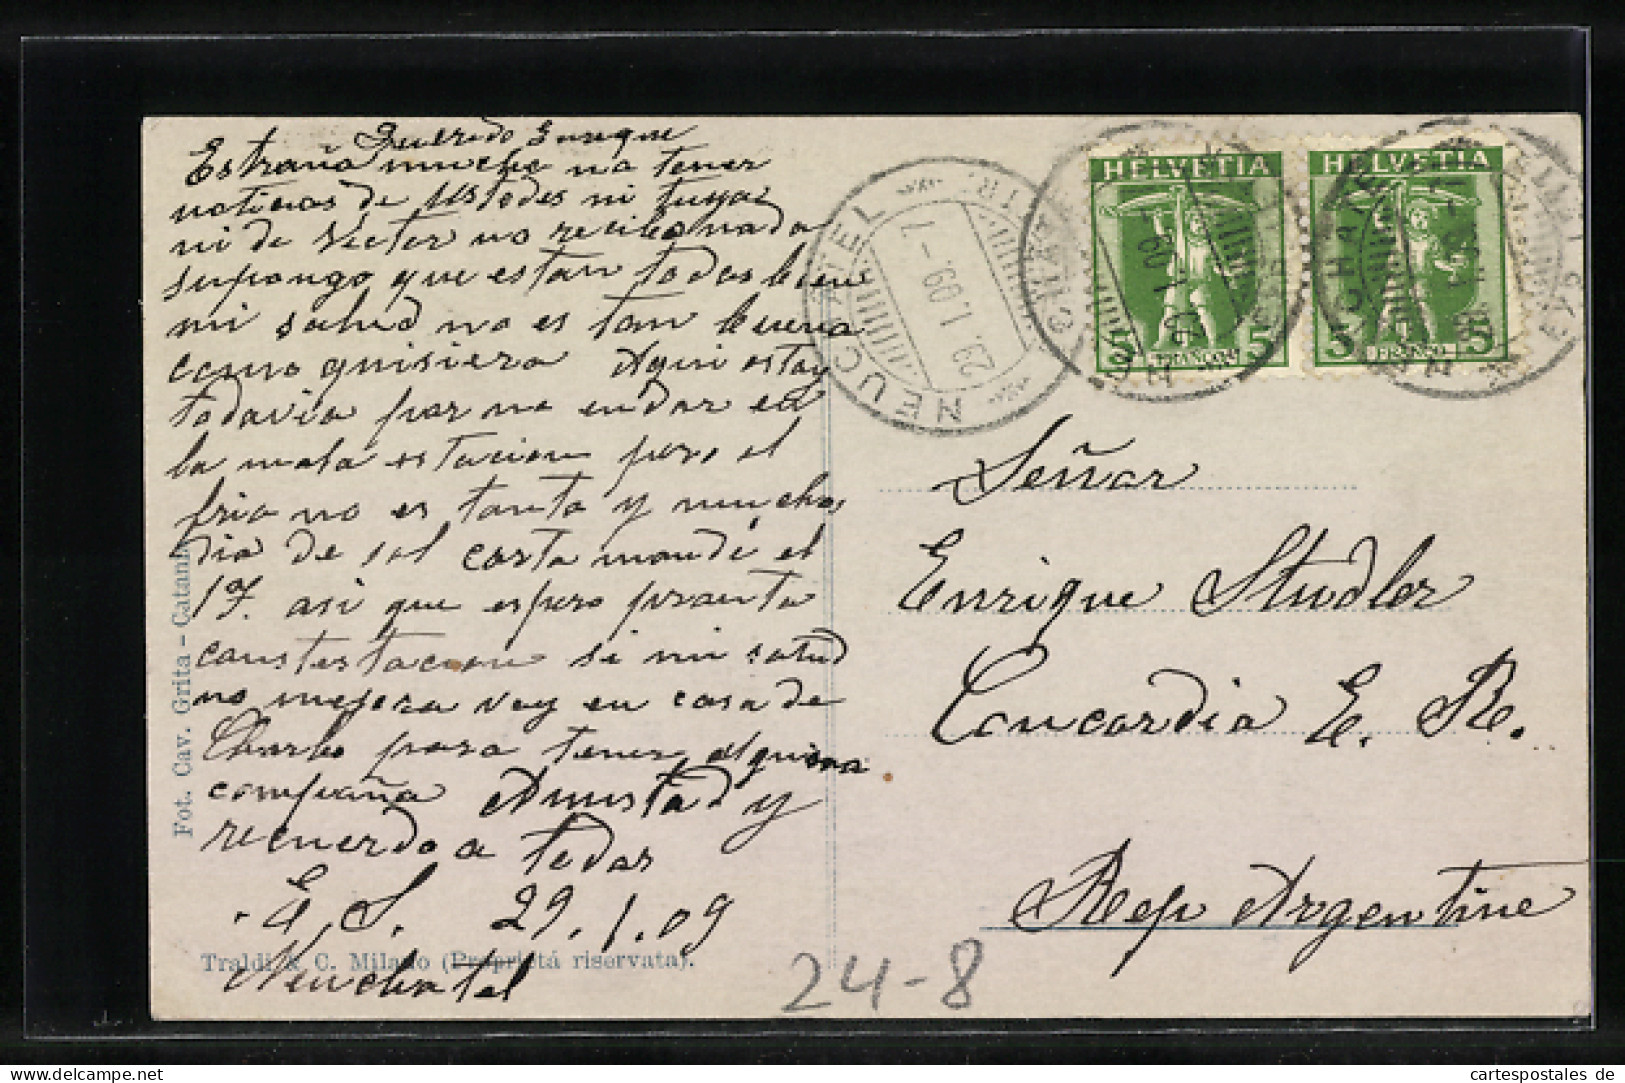 Querido Enrique
Estraña mucho no tener
noticias de Ustedes ni tuyas
ni de Victor no recibo nada
supongo que estan todos bien
mi salud no es tan buena
como quisiera Aqui estoy
todavia por no andar en
la mala estacion pero el
frio no es tanto y muchos
dia de sol carta mandé el
17. asi que espero pronta
constestacion si mi salud
no mejora voy en casa de
Charles para tener alguna
compañia Amistad y
recuerdo a todos
E. S. 29.1.09
Neuchatel
Fot. Cav. Grita - Catania
Traldi & C. Milano (Proprietá riservata).
24-8
NEUCHATEL
29. 1. 09. - 7
HELVETIA
5 FRANCO 5
HELVETIA
5 FRANCO 5
Señor
Enrique Studler
Concordia E. R.
Rep Argentine
cartespostales de
www.delcampe.net